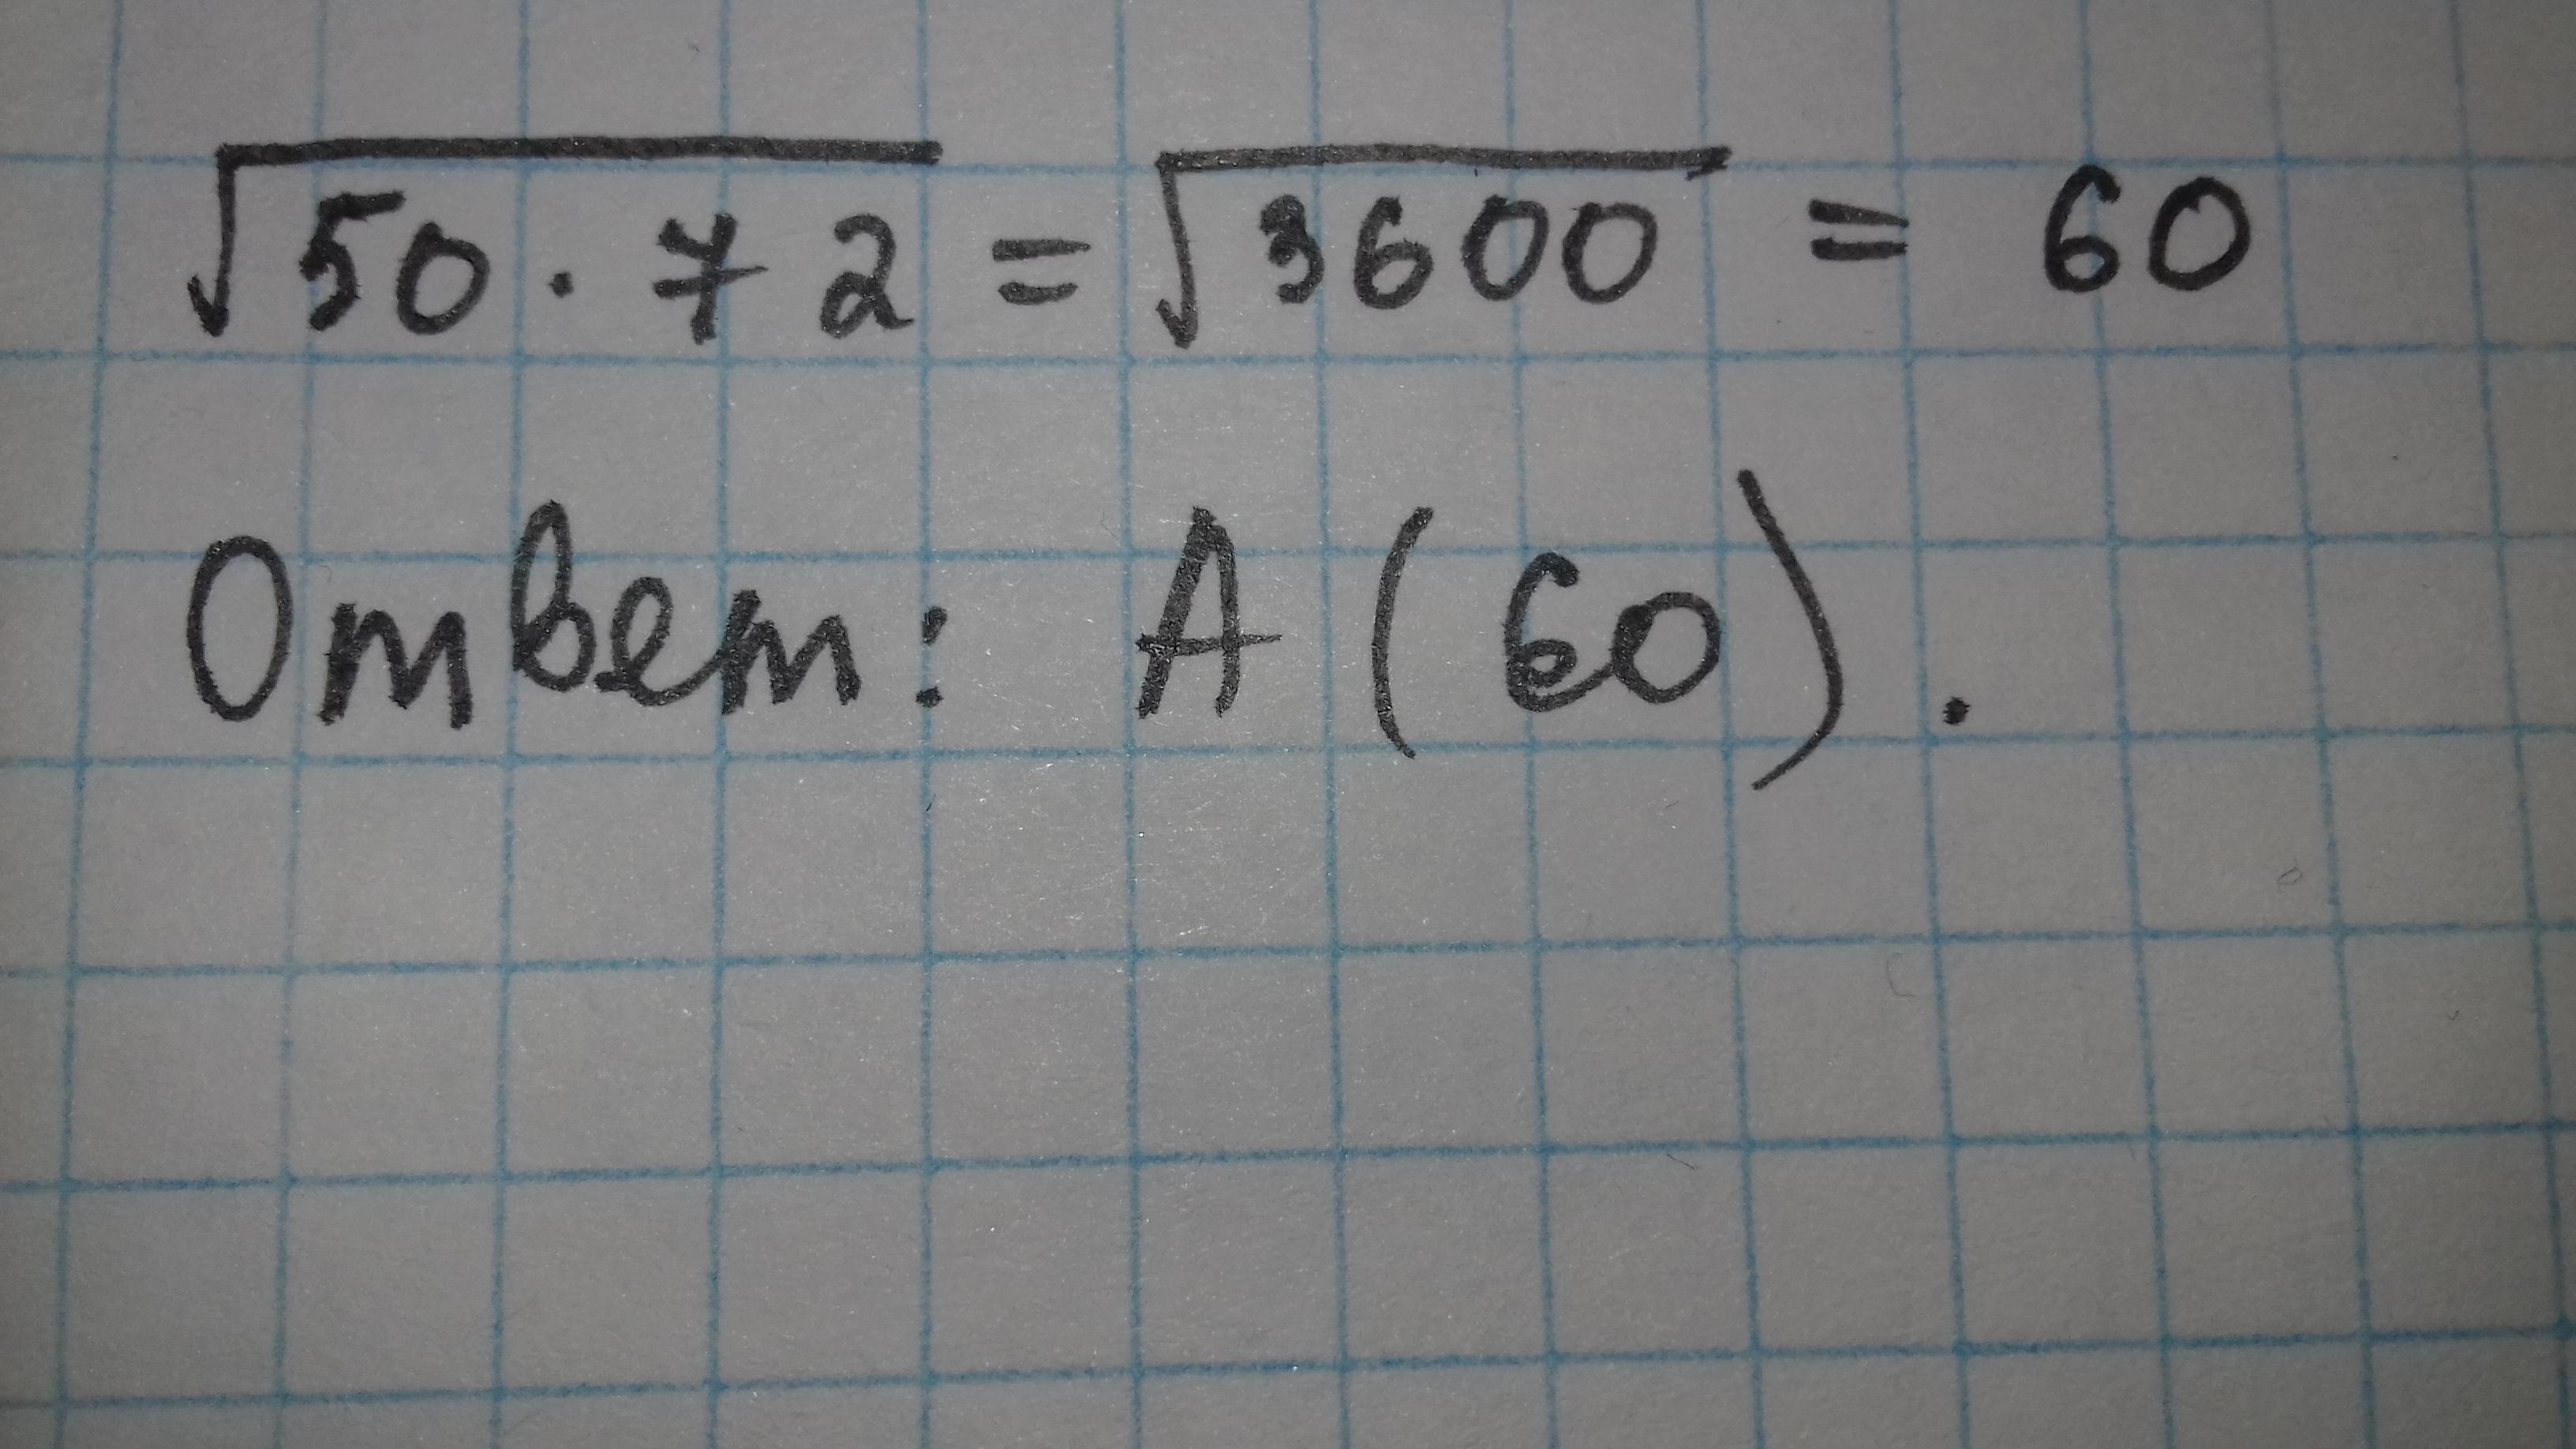 √50 · 72 = √3600 = 60
Ответ: А (60).